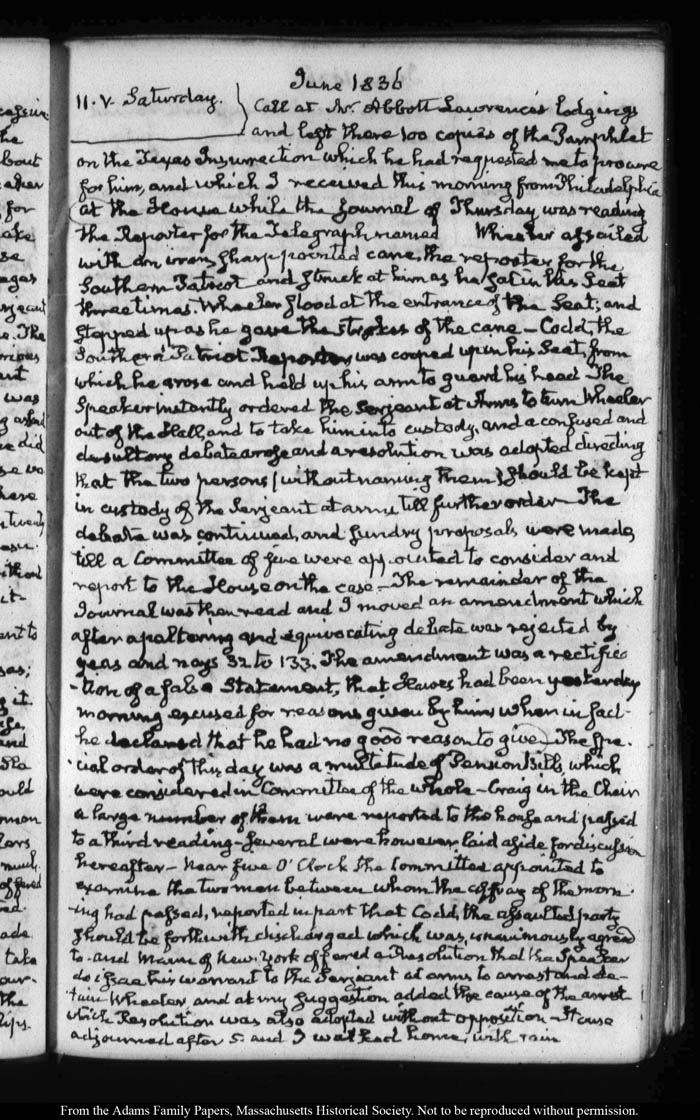 June 1836
11. V. Saturday. Call at Mr. Abbott Lawrence's lodgings
and left there 100 copies of the Pamphlet
on the Texas Insurrection which he had requested me to procure
for him, and which I received this morning from Philadelphia
At the House while the Journal of Thursday was reading
the Reporter for the Telegraph named Wheeler assailed
with an iron sharp pointed cane, the reporter for the
Southern Patriot and struck at him as he sat in his Seat
three times. Wheeler stood at the entrance of the Seat; and
stepped up as he gave the strokes of the cane — Codd, the
Southern Patriot Reporter was cooped up in his Seat, from
which he arose and held up his arm to guard his head The
Speaker instantly ordered the Serjeant at Arms to turn Wheeler
out of the Hall, and to take him into custody, and a confused and
desultory debate arose and a resolution was adopted directing
that the two persons (without naming them) should be kept
in custody of the Serjeant at arms till further order — The
debate was continued, and sundry proposals were made,
till a Committee of five were appointed to consider and
report to the House on the case — The remainder of the
Journal was then read and I moved an amendment which
after a paltering and equivocating debate was rejected by
yeas and nays 32 to 133. The amendment was a rectifica
-tion of a false Statement, that Hawes had been yesterday
morning excused for reasons given by him when in fact
he declared that he had no good reason to give. The Spe-
cial order of this day was a multitude of Pension Bills which
were considered in Committee of the whole — Craig in the Chair
a large number of them were reported to the house and passed
to a third reading — Several were however laid aside for discussion
hereafter — Near five O'Clock the Committee appointed to
examine the two men between whom the affray of the morn-
-ing had passed, reported in part that Codd, the assaulted party
should be forthwith discharged which was unanimously agreed
to — and Mann of New York offered a Resolution that the Speaker
do issue his warrant to the Serjeant at arms to arrest and de-
tain Wheeler, and at my suggestion added the cause of the arrest
which Resolution was also adopted without opposition — House
adjourned after 5. and I walked home, with rain
From the Adams Family Papers, Massachusetts Historical Society. Not to be reproduced without permission.